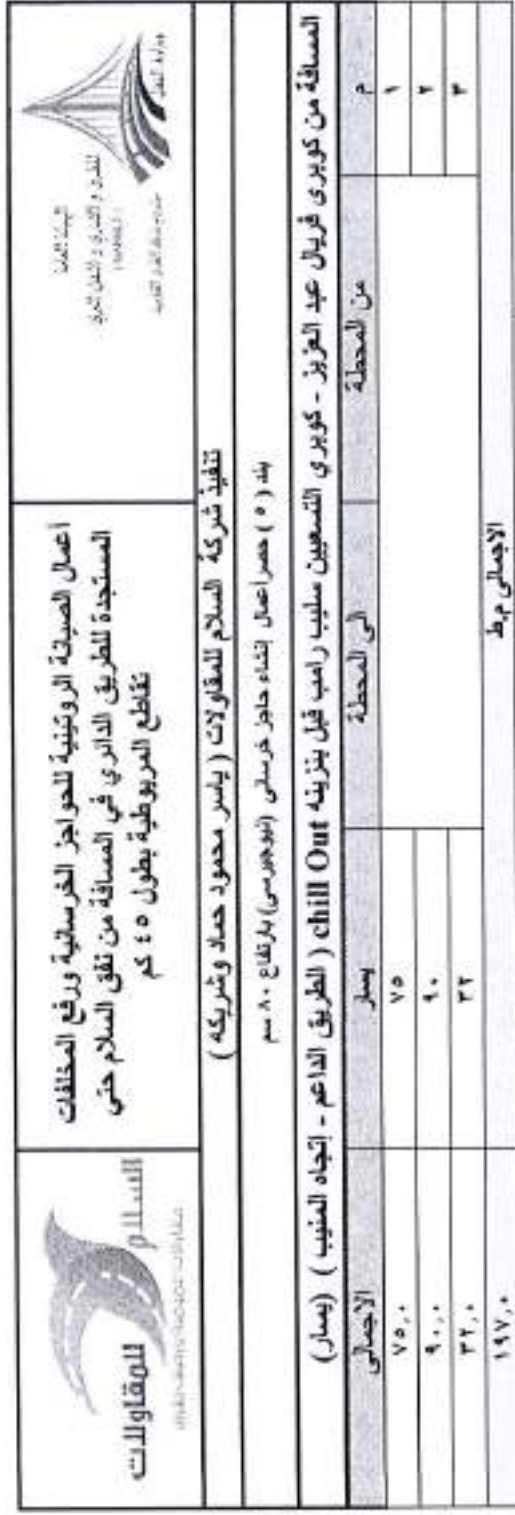 وزارة النقل
الهيئة العامة
للطرق و الكباري و النقل البري
أعمال الصيانة الروتينية للحواجز الخرسانية ورفع المخلفات
المستجدة للطريق الدائري في المسافة من نفق السلام حتي
تقاطع المريوطية بطول ٤٥ كم
السلام
للمقاولات
تنفيذ شركة السلام للمقاولات ( ياسر محمود حماد وشريكه )
بند ( ٥ ) حصر أعمال إنشاء حاجز خرسانى (نيوجيرسى) بارتفاع ٨٠ سم
المسافة من كوبرى فريال عبد العزيز - كوبري التسعيين سليب رامب قبل بنزينه chill Out ( الطريق الداعم - إتجاه المنيب ) (يسار)
م من المحطة الى المحطة يسار الاجمالى
١ ٧٥ ٧٥,٠
٢ ٩٠ ٩٠,٠
٣ ٣٢ ٣٢,٠
الاجمالى م.ط ١٩٧,٠